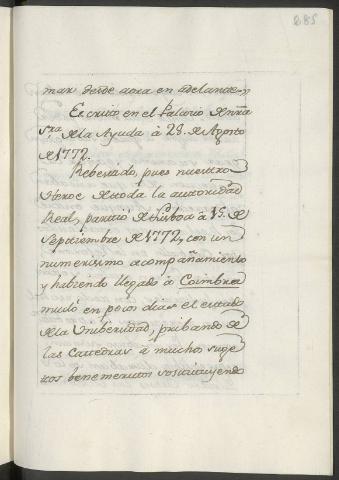 285
mar desde aora en adelante.
Escrito en el Palacio de nrã
Srã de la Ayuda à 28. de Agosto
de 1772.
Rebestido, pues nuestro
Heroe de toda la autoridad
Real, partiò de Lisboa à 15. de
Septiembre de 1772, con un
numerisimo acompañamiento
y habiendo llegado à Coimbra
mudò en pocos dias el estado
de la Unibersidad, pribando de
las Catedras à muchos suge
tos benemeritos sostituyendo